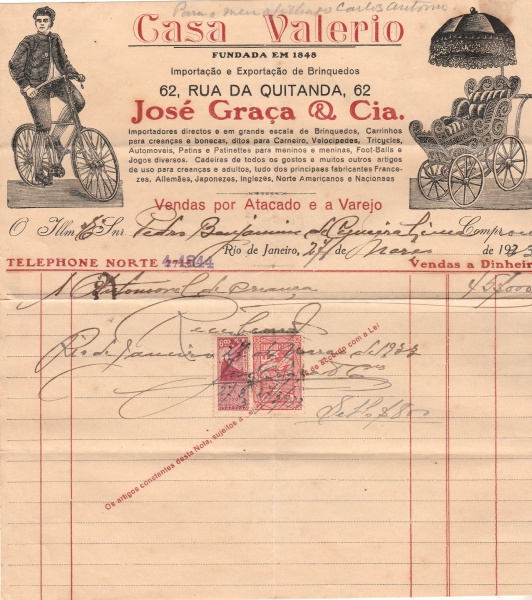 Para o meu afilhado Carlos Antonio
Casa Valerio
FUNDADA EM 1848
Importação e Exportação de Brinquedos
62, RUA DA QUITANDA, 62
José Graça & Cia.
Importadores directos e em grande escala de Brinquedos, Carrinhos
para creanças e bonecas, ditos para Carneiro, Velocipedes, Tricycles,
Automoveis, Patins e Patinettes para meninos e meninas, Foot-Balls e
Jogos diversos. Cadeiras de todos os gostos e muitos outros artigos
de uso para creanças e adultos, tudo dos principaes fabricantes France-
zes, Allemães, Japonezes, Inglezes, Norte Americanos e Nacionaes
Vendas por Atacado e a Varejo
O Illmo Snr. Pedro Benjamim de Cerqueira Lima Comprou
Rio de Janeiro, 27 de Março de 1933
TELEPHONE NORTE 4-1844 Vendas a Dinheiro
1 Automovel de creança
Recebemos
Rio de Janeiro 27 de Março de 1933
600
Os artigos constantes desta Nota, sujeitos a sello, de accordo com a Lei